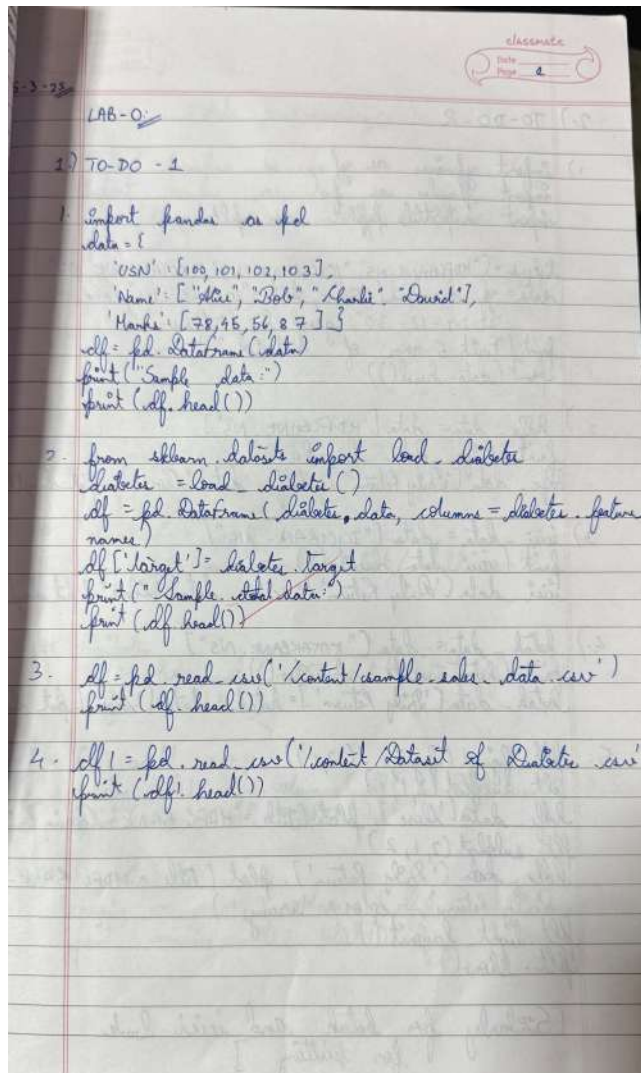 classmate
Date
Page 1
5-3-25
LAB-0:
1) TO-DO - 1
1. import pandas as pd
data = {
'USN' : [100, 101, 102, 103],
'Name' : [ "Alice", "Bob", "Charlie", "David"],
'Marks' : [78, 45, 56, 87 ] }
df = pd. DataFrame (data)
print ("Sample data:")
print (df. head())
2. from sklearn. datasets import load_diabetes
diabetes = load_diabetes ()
df = pd. DataFrame ( diabetes. data, columns = diabetes. feature
names.)
df ['target'] = diabetes. target
print (" Sample data:")
print (df head())
3. df = pd. read_csv('/content/sample_sales_data.csv')
print (df. head())
4. df1 = pd. read_csv('/content/Dataset of Diabetes .csv'
print (df1. head())